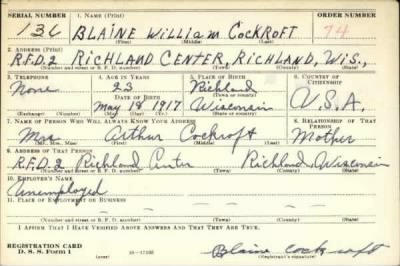 SERIAL NUMBER 1. NAME (Print) ORDER NUMBER
136 BLAINE William COCKROFT 74
(First) (Middle) (Last)
2. ADDRESS (Print)
R.F.D. 2 RICHLAND CENTER, RICHLAND, WIS.,
(Number and street or R. F. D. number) (Town) (County) (State)
3. TELEPHONE 4. AGE IN YEARS 5. PLACE OF BIRTH 6. COUNTRY OF CITIZENSHIP
None 23 Richland
DATE OF BIRTH (Town or county)
May 18 1917 Wisconsin U.S.A.
(Exchange) (Number) (Mo.) (Day) (Yr.) (State or country)
7. NAME OF PERSON WHO WILL ALWAYS KNOW YOUR ADDRESS 8. RELATIONSHIP OF THAT PERSON
Mrs Arthur Cockroft Mother
(Mr., Mrs., Miss) (First) (Middle) (Last)
9. ADDRESS OF THAT PERSON
R.F.D. 2 Richland Center Richland Wisconsin
(Number and street or R. F. D. number) (Town) (County) (State)
10. EMPLOYER'S NAME
Unemployed
11. PLACE OF EMPLOYMENT OR BUSINESS
(Number and street or R. F. D. number) (Town) (County) (State)
I AFFIRM THAT I HAVE VERIFIED ABOVE ANSWERS AND THAT THEY ARE TRUE.
REGISTRATION CARD
D. S. S. Form 1 Blaine Cockroft
(Registrant's signature)